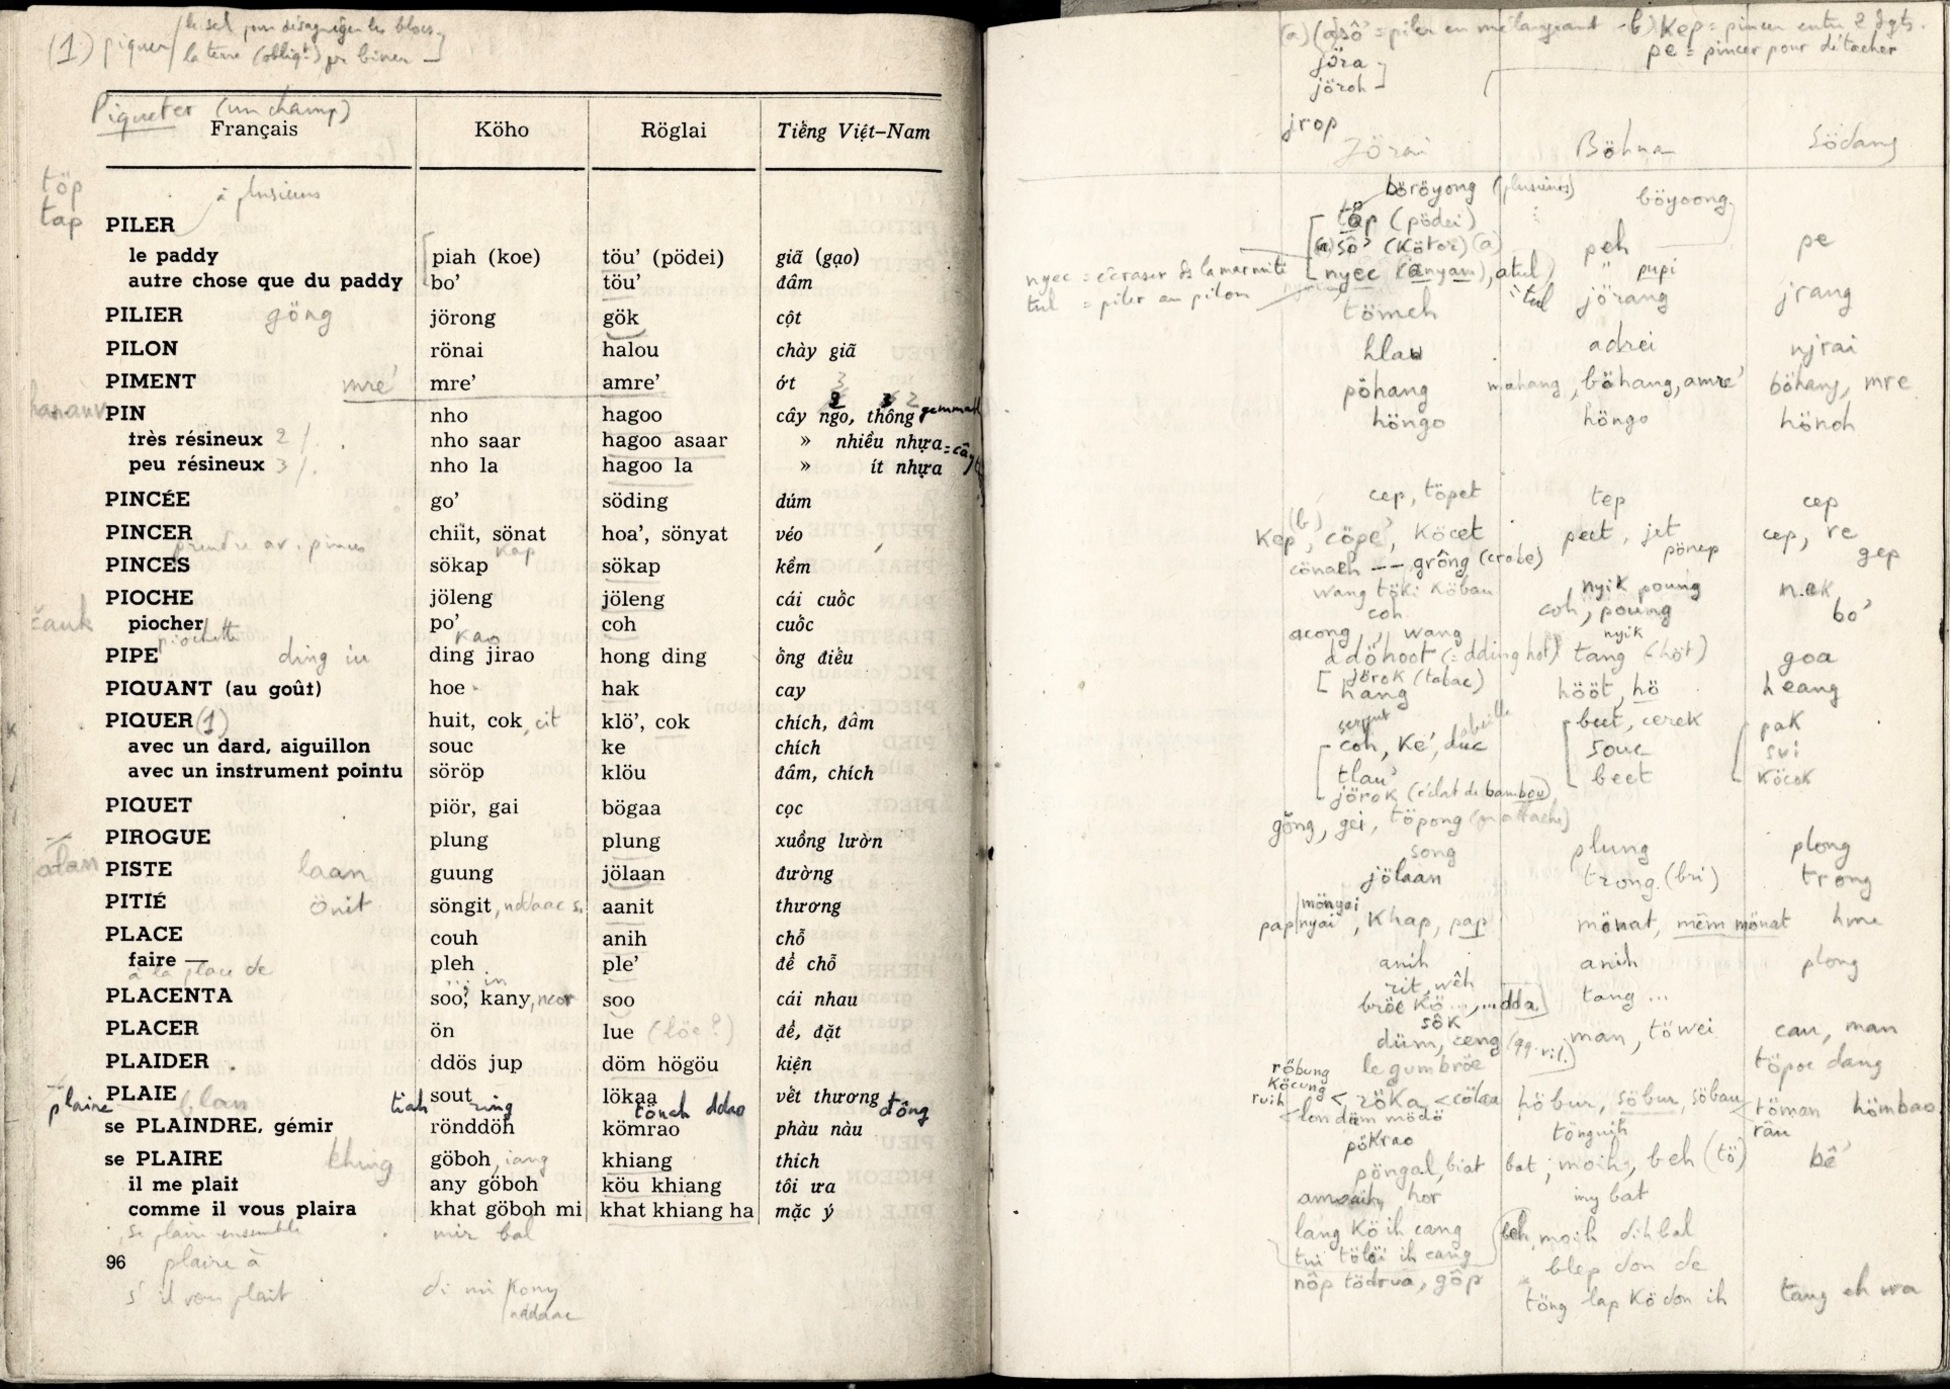 (1) piquer le sel pour désagréger les blocs
la terre (obligt) pr biner
Piqueter (un champ)
Français Köho Röglai Tiếng Việt–Nam
töp
tap
à plusieurs
PILER
le paddy piah (koe) töu’ (pödei) giã (gạo)
autre chose que du paddy bo’ töu’ đâm
PILIER göng jörong gök cột
PILON rönai halou chày giã
PIMENT mre’ mre’ amre’ ớt
PIN nho hagoo cây ngo, thông
très résineux 2/. nho saar hagoo asaar » nhiều nhựa
peu résineux 3/. nho la hagoo la » ít nhựa
PINCÉE go’ söding dúm
PINCER chiit, sönat hoa’, sönyat véo
prendre av. pinces kap
PINCES sökap sökap kềm
PIOCHE jöleng jöleng cái cuốc
čauk piocher po’ coh cuốc
piochette kao
PIPE ding jirao hong ding ồng điếu
PIQUANT (au goût) hoe hak cay
PIQUER (1) huit, cok, cit klö’, cok chích, đâm
avec un dard, aiguillon souc ke chích
avec un instrument pointu söröp klöu đâm, chích
PIQUET piör, gai bögaa cọc
PIROGUE plung plung xuồng lườn
PISTE laan guung jölaan đường
PITIÉ önit söngit, nddaac s. aanit thương
PLACE couh anih chỗ
faire — pleh ple’ để chỗ
à la place de
PLACENTA soo, kany, soo cái nhau
PLACER ön lue (löe?) để, đặt
PLAIDER ddös jup döm högöu kiện
PLAIE blan sout lökaa vết thương
plaine tiah ring tönch ddao đồng
se PLAINDRE, gémir rönddöh kömrao phàu nàu
se PLAIRE khing göboh, iang khiang thích
il me plait any göboh köu khiang tôi ưa
comme il vous plaira khat göboh mi khat khiang ha mặc ý
se plaire ensemble mir bal
96 plaire à
s'il vous plait di mi kony
nddaac
(a) (a)sô’ = piler en mélangeant - b) Kep = pincer entre 2 dgts.
pe = pincer pour détacher
jöra
jöroh
jrop
Jörai Böhna Södang
böröyong (plusieurs) böyoong
töp (pödei)
(a)sô’ (Kötor) (a) peh pe
nyec = écraser ds la marmite nyec (anyam), atul " pupi
tul = piler au pilon tul
tömeh jörang jrang
hlau adrei njrai
pöhang mahang, böhang, amre’ böhang, mre
höngo höngo hönoh
cep, töpet tep cep
(b)
Kep, cöpe’, Köcet peet, jet cep, re
pönep gep
cönaeh — grông (crabe)
wang töki Köbau nyik poung
coh coh, poung bo’
acong, wang nyik
ddöhoot (= dding hot) tang (höt) goa
jörok (tabac)
hang hööt, hö heang
serpent abeille
coh, Ke’, duc beet, cerek pak
tlau’ souc sui
jörok (éclat de bambou) beet Köcok
gông, gei, töpong
song plung plong
jölaan trong (bri) trong
mönyai
pap nyai, Khap, pap mönat, mêm mönat hme
anih anih plong
rit, wêh
bröe Kö ..., ... dda tang ...
sôk
düm, ceng man, töwei cau, man
le gum bröe töpoe dang
röbung
Köcung
ruih röka cölaa höbur, söbur, söbau töman hömbao
lon däm mödö
pökrao tönguih râu
pöngal, biat bat; moih, beh (tö) bê’
hor iny bat
lang Kö ih cang beh, moih dih bal
tui tölöi ih cang blep don de
nôp tödrua, gôp töng lap Kö don ih tang eh wa